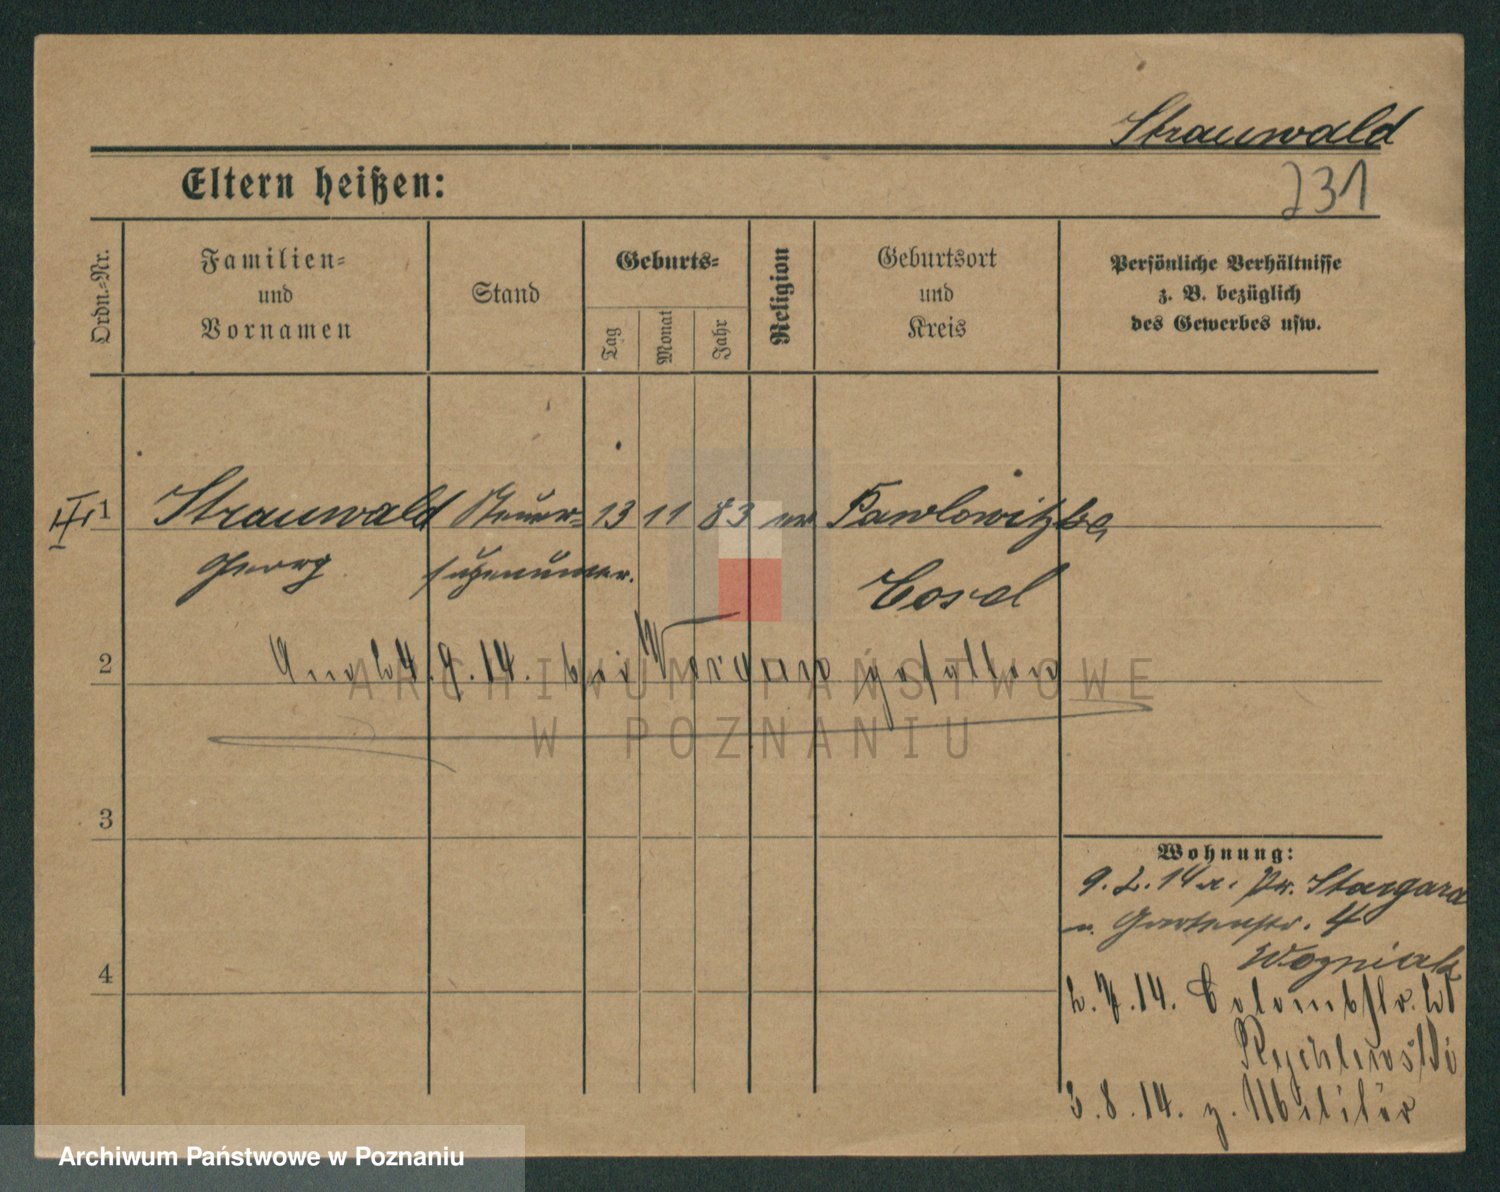 Strauwald
231
Eltern heißen:
Ordn.-Nr.
Familien-
und
Vornamen
Stand
Geburts-
Tag
Monat
Jahr
Religion
Geburtsort
und
Kreis
Persönliche Verhältnisse
z. B. bezüglich
des Gewerbes usw.
III 1 Strauwald Steuer- 13 11 83 ev Pawlowitzke
Georg supernumer. Cosel
2 Am 24.9.14. bei Verdun gefallen
3
Wohnung:
9.2.14 a. Pr. Stargard
n. Gartenstr. 4
Wozniak
4
2.7.14. Colombstr.
Rychlewski
3.8.14. z. Militär
ARCHIWUM PAŃSTWOWE
W POZNANIU
Archiwum Państwowe w Poznaniu